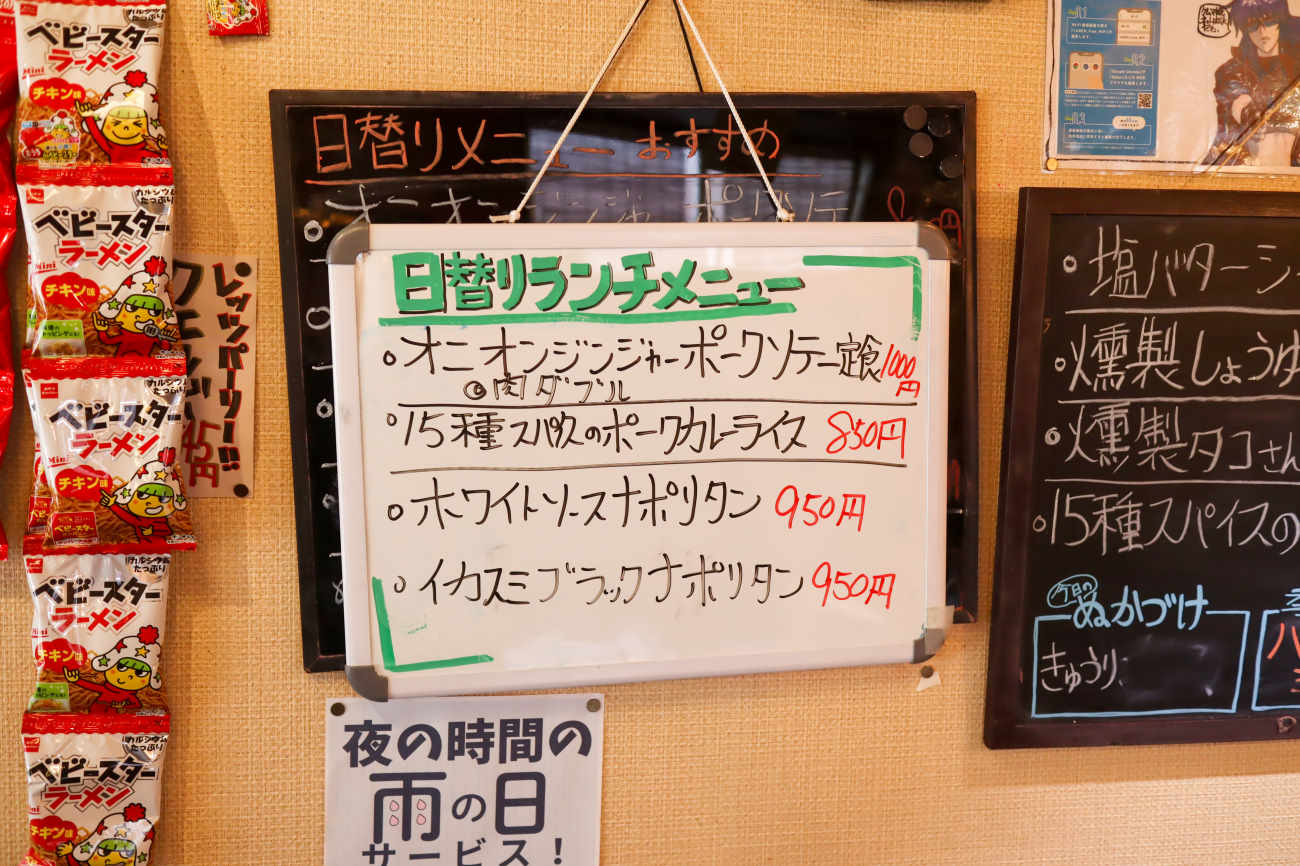 カルシウム
たっぷり
ベビースター
ラーメン
Mini
チキン味
カルシウム
たっぷり
ベビースター
ラーメン
Mini
チキン味
カルシウム
たっぷり
ベビースター
ラーメン
Mini
チキン味
ベビースター
カルシウム
たっぷり
ベビースター
ラーメン
Mini
チキン味
カルシウム
たっぷり
ベビースター
ラーメン
Mini
チキン味
レッツパーリー!!
45円
日替りメニュー おすすめ
オニオンジンジャーポークソテ
日替りランチメニュー
オニオンジンジャーポークソテー定食 1000円
◎肉ダブル
15種スパイスのポークカレーライス 850円
ホワイトソースナポリタン 950円
イカスミブラックナポリタン 950円
夜の時間の
雨の日
サービス!
塩バターシ
燻製しょうゆ
燻製タコさん
15種スパイスの
今日の
ぬかづけ
きゅうり